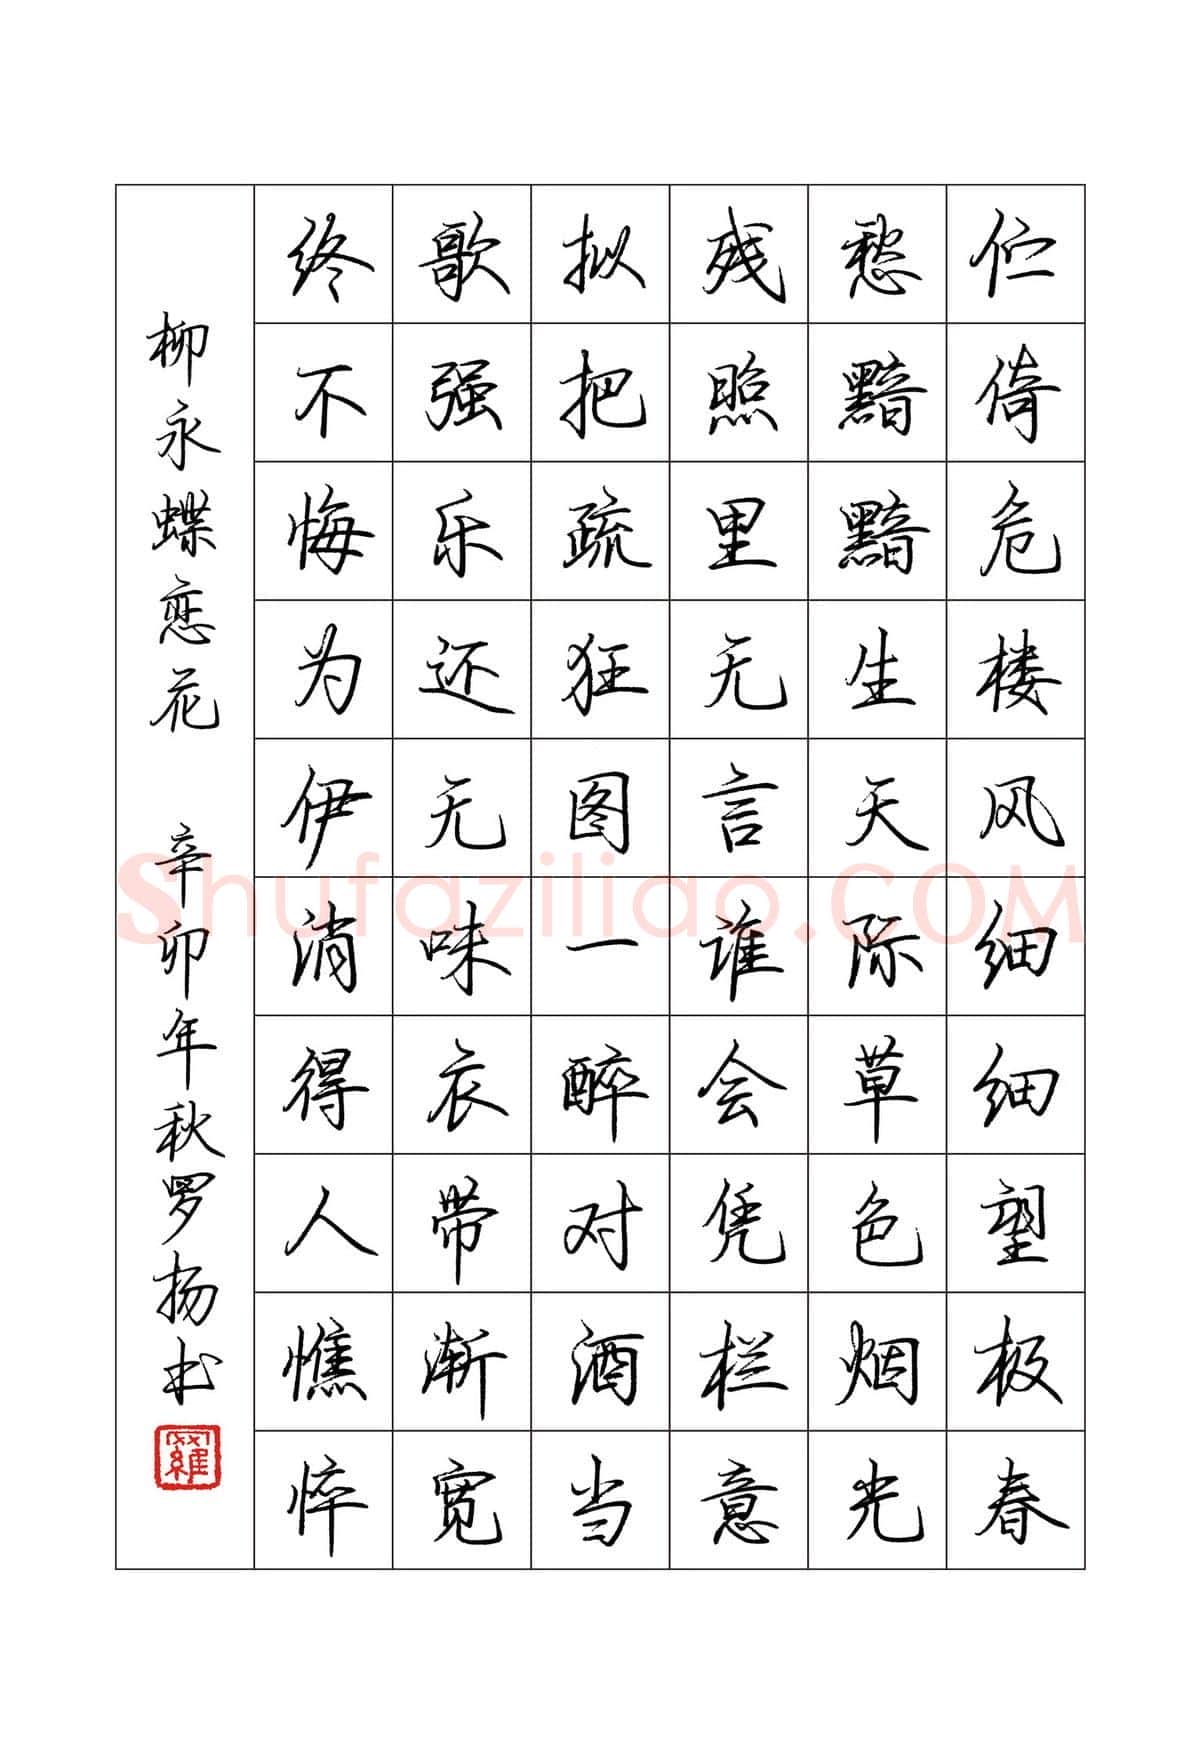 伫倚危楼风细细望极春
愁黯黯生天际草色烟光
残照里无言谁会凭栏意
拟把疏狂图一醉对酒当
歌强乐还无味衣带渐宽
终不悔为伊消得人憔悴
柳永蝶恋花 辛卯年秋罗扬书
羅
Shufaziliao.COM